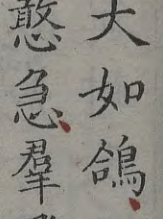 大如鴿
憨急羣